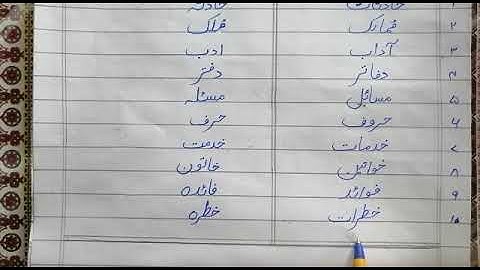 ۱ حادثات حادثہ
۲ ممالک ملک
۳ آداب ادب
۴ دفاتر دفتر
۵ مسائل مسئلہ
۶ حروف حرف
۷ خدمات خدمت
۸ خواتین خاتون
۹ فوائد فائدہ
۱۰ خطرات خطرہ